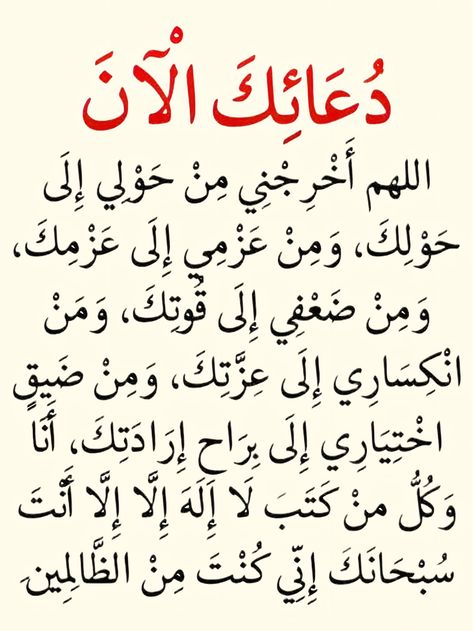 دُعَائِكَ الْآنَ
اللهم أَخْرِجْنِي مِنْ حَوْلِي إِلَى
حَوْلِكَ، وَمِنْ عَزْمِي إِلَى عَزْمِكَ،
وَمِنْ ضَعْفِي إِلَى قُوتِكَ، وَمَنْ
انْكِسَارِي إِلَى عِزَّتِكَ، وَمِنْ ضَيِقٍ
اخْتِيَارِي إِلَى بِرَاحِ إِرَادَتِكَ، أَنَا
وَكُلُّ منْ كَتَبَ لَا إِلَهَ إِلَّا إِلَّا أَنْتَ
سُبْحَانَكَ إِنِّي كُنْتَ مِنْ الظَّالِمِينِ